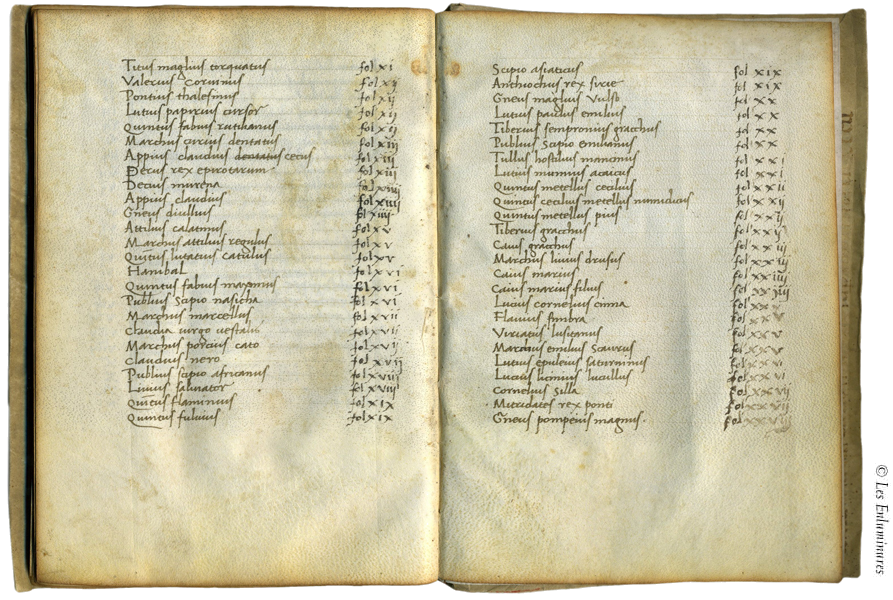 Titus maglius torquatus fol xi
Valerius Corvinus fol xii
Pontius thalesinus fol xii
Lutius papirius cursor fol xii
Quintus fabius rutilianus fol xii
Marchus curius dentatus fol xiii
Appius claudius dentatus cecus fol xiii
Pirus rex epirotarum fol xiii
Decius murena fol xiiii
Appius claudius fol xiiii
Gneus diullius fol xiiii
Attilius calatinus fol x v
Marchus attilius regulus fol x v
Quintus lutatius catulus fol x v
Hanibal fol x vi
Quintus fabius maximus fol x vi
Publius Scipio nasicha fol x vi
Marchus marcellus fol x vii
Claudia virgo vestalis fol x vii
Marchus porcius cato fol x vii
Claudius nero fol x vii
Publius scipio africanus fol x viii
Livius salinator fol x viii
Quintus flaminius fol x ix
Quintus fulvius fol x ix
Scipio asiaticus fol x ix
Anthiochus rex sirie fol x ix
Gneus maglius Vulso fol x x
Lutius paulus emilius fol x x
Tiberius sempronius gracchus fol x x
Publius Scipio emilianus fol x x
Tullus hostilius mancinus fol x x i
Lutius mumius acaicus fol x x i
Quintus metellus cecilius fol x x ii
Quintus cecilius metellus numidicus fol x x ii
Quintus metellus pius fol x x ii
Tiberius gracchus fol x x ii
Caius gracchus fol x x iii
Marchus livius drusus fol x x iii
Caius marius fol x x iii
Caius marius filius fol x x iiii
Lucius cornelius cinna fol x x v
Flavius fimbra fol x x v
Viriatus lusitanus fol x x v
Marchus emilius Scaurus fol x x v
Lutius apuleius saturninus fol x x vi
Lucius licinius lucullus fol x x vi
Cornelius Silla fol x x vii
Mitridates rex ponti fol x x vii
Gneus pompeius magnus. fol x x vii
© Les Enluminures